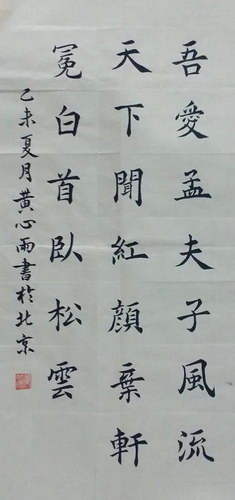 吾愛孟夫子風流
天下聞紅顔棄軒
冕白首臥松雲
乙未夏月黄心雨書於北京